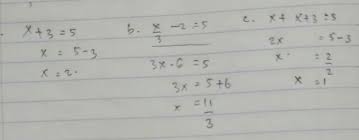 . x+3=5
x = 5-3
x = 2.
b. x/3 -2=5
3x-6=5
3x = 5+6
x = 11/3
c. x+ x+3=5
2x = 5-3
x. = 2/2
x = 1